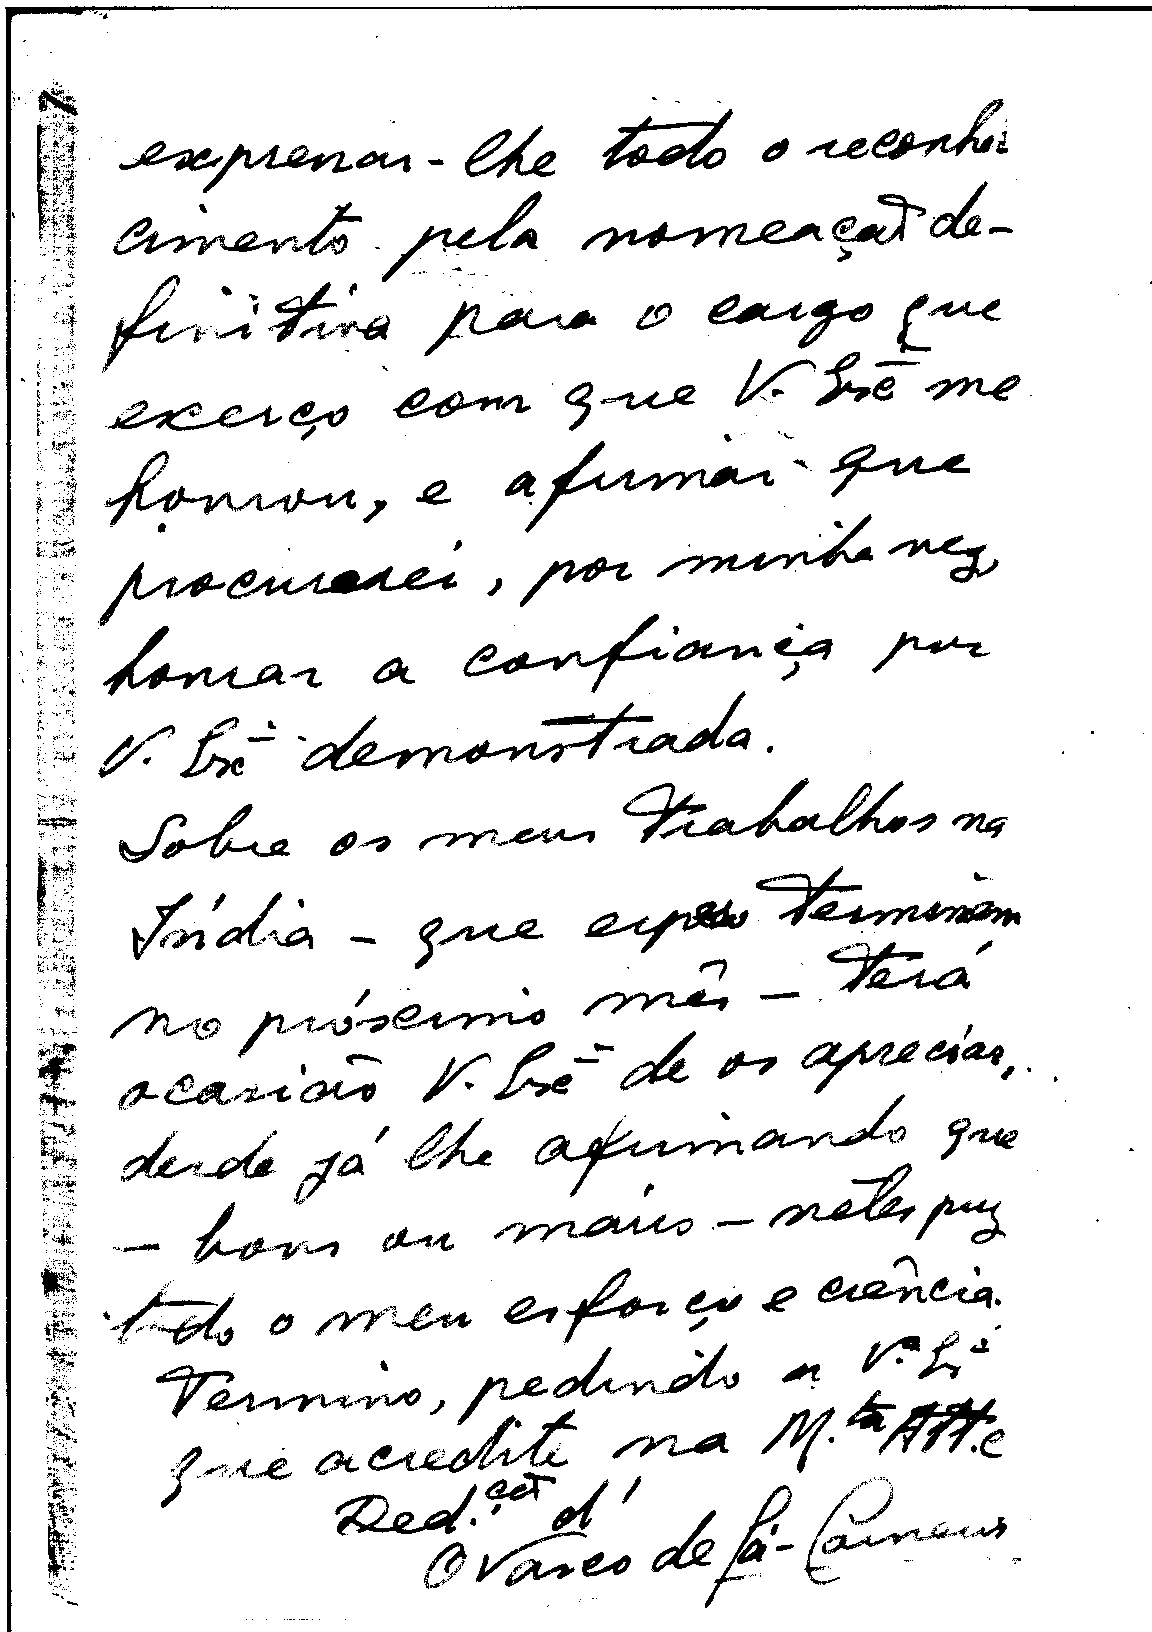 expressar-lhe todo o reconhe
cimento pela nomeação de-
finitiva para o cargo que
exerço com que V. Excª me
honrou, e afirmar que
procurarei, por minha vez,
honrar a confiança por
V. Excª demonstrada.
Sobre os meus trabalhos na
Índia - que espero terminem
no próximo mês - terá
ocasião V. Excª de os apreciar,
desde já lhe afirmando que
- bons ou máus - nêles puz
todo o meu esforço e ciência.
Termino, pedindo a V.ª Exª
que acredite na M.ta Att.e
Ded.ção d'
O Vasco de Sá-Carneiro